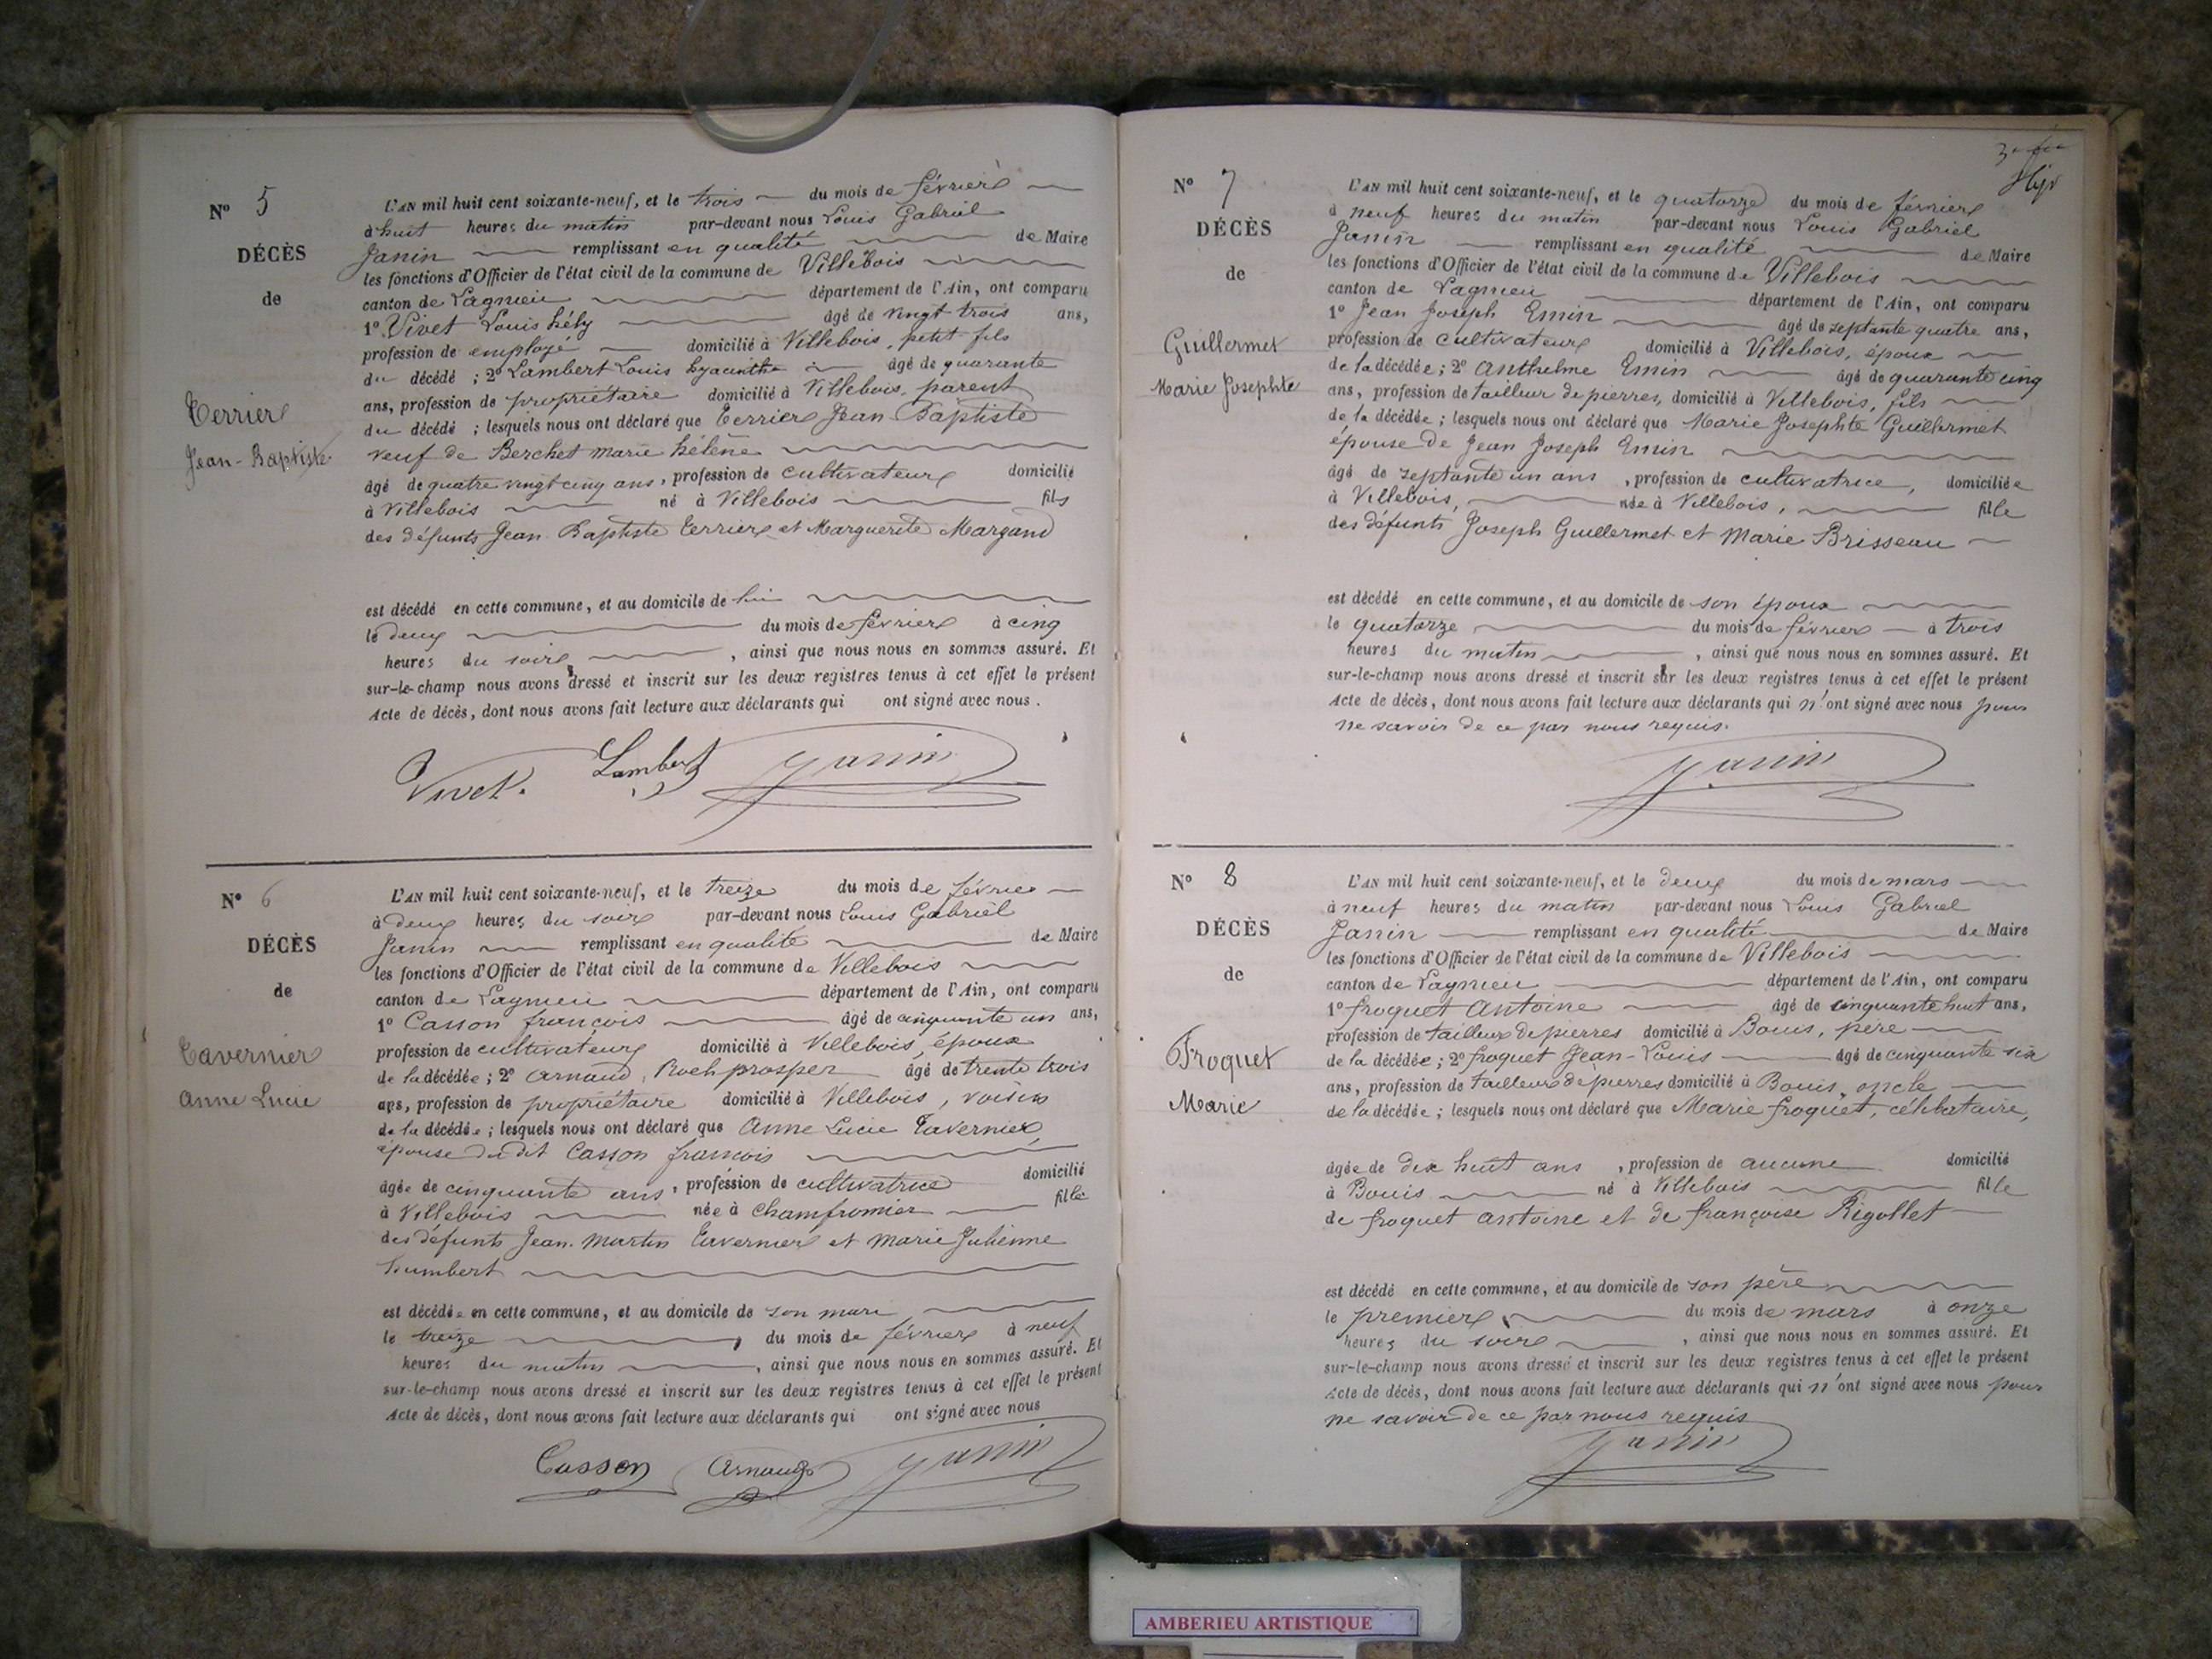 N° 5
DÉCÈS
de
Terrier
Jean-Baptiste
L'AN mil huit cent soixante-neuf, et le trois du mois de février
à huit heures du matin par-devant nous Louis Gabriel
Janin remplissant en qualité de Maire
les fonctions d'Officier de l'état civil de la commune de Villebois
canton de Lagnieu département de l'Ain, ont comparu
1° Vivet Louis hély âgé de vingt trois ans,
profession de employé domicilié à Villebois, petit-fils
du décédé ; 2° Lambert Louis hyacinthe âgé de quarante
ans, profession de propriétaire domicilié à Villebois, parent
du décédé ; lesquels nous ont déclaré que Terrier Jean Baptiste
veuf de Berchet marie hélène
âgé de quatre vingt cinq ans, profession de cultivateur domicilié
à Villebois né à Villebois fils
des défunts Jean Baptiste Terrier et Marguerite Margand
est décédé en cette commune, et au domicile de lui
le deux du mois de février à cinq
heures du soir, ainsi que nous nous en sommes assuré. Et
sur-le-champ nous avons dressé et inscrit sur les deux registres tenus à cet effet le présent
Acte de décès, dont nous avons fait lecture aux déclarants qui ont signé avec nous.
Vivet. Lambert Janin
N° 6
DÉCÈS
de
Tavernier
Anne Lucie
L'AN mil huit cent soixante-neuf, et le treize du mois de février
à deux heures du soir par-devant nous Louis Gabriel
Janin remplissant en qualité de Maire
les fonctions d'Officier de l'état civil de la commune de Villebois
canton de Lagnieu département de l'Ain, ont comparu
1° Casson françois âgé de cinquante un ans,
profession de cultivateur domicilié à Villebois, époux
de la décédée ; 2° Arnaud, Roch prosper âgé de trente trois
ans, profession de propriétaire domicilié à Villebois, voisin
de la décédée ; lesquels nous ont déclaré que Anne Lucie Tavernier,
épouse du dit Casson françois
âgée de cinquante ans, profession de cultivatrice domicilié
à Villebois née à Chamfromier fille
des défunts Jean Martin Tavernier et Marie Julienne
humbert
est décédée en cette commune, et au domicile de son mari
le treize, du mois de février à neuf
heures du matin, ainsi que nous nous en sommes assuré. Et
sur-le-champ nous avons dressé et inscrit sur les deux registres tenus à cet effet le présent
Acte de décès, dont nous avons fait lecture aux déclarants qui ont signé avec nous
Casson Arnaud Janin
N° 7
DÉCÈS
de
Guillermet
Marie Josephte
L'AN mil huit cent soixante-neuf, et le quatorze du mois de février
à neuf heures du matin par-devant nous Louis Gabriel
Janin remplissant en qualité de Maire
les fonctions d'Officier de l'état civil de la commune de Villebois
canton de Lagnieu département de l'Ain, ont comparu
1° Jean Joseph Emin âgé de septante quatre ans,
profession de cultivateur domicilié à Villebois, époux
de la décédée ; 2° Anthelme Emin âgé de quarante cinq
ans, profession de tailleur de pierres, domicilié à Villebois, fils
de la décédée ; lesquels nous ont déclaré que Marie Josephte Guillermet
épouse de Jean Joseph Emin
âgé de septante un ans, profession de cultivatrice, domiciliée
à Villebois, née à Villebois, fille
des défunts Joseph Guillermet et Marie Brisseau
est décédé en cette commune, et au domicile de son époux
le quatorze du mois de février à trois
heures du matin, ainsi que nous nous en sommes assuré. Et
sur-le-champ nous avons dressé et inscrit sur les deux registres tenus à cet effet le présent
Acte de décès, dont nous avons fait lecture aux déclarants qui n'ont signé avec nous pour
ne savoir de ce par nous requis.
Janin
N° 8
DÉCÈS
de
Froquet
Marie
L'AN mil huit cent soixante-neuf, et le deux du mois de mars
à neuf heures du matin par-devant nous Louis Gabriel
Janin remplissant en qualité de Maire
les fonctions d'Officier de l'état civil de la commune de Villebois
canton de Lagnieu département de l'Ain, ont comparu
1° froquet Antoine âgé de cinquante huit ans,
profession de tailleur de pierres domicilié à Bouis, père
de la décédée ; 2° froquet Jean-Louis âgé de cinquante six
ans, profession de tailleur de pierres domicilié à Bouis, oncle
de la décédée ; lesquels nous ont déclaré que Marie froquet, célibataire,
âgée de dix huit ans, profession de aucune domicilié
à Bouis né à Villebois fille
de froquet antoine et de françoise Rigollet
est décédé en cette commune, et au domicile de son père
le premier du mois de mars à onze
heures du soir, ainsi que nous nous en sommes assuré. Et
sur-le-champ nous avons dressé et inscrit sur les deux registres tenus à cet effet le présent
Acte de décès, dont nous avons fait lecture aux déclarants qui n'ont signé avec nous pour
ne savoir de ce par nous requis
Janin
AMBERIEU ARTISTIQUE